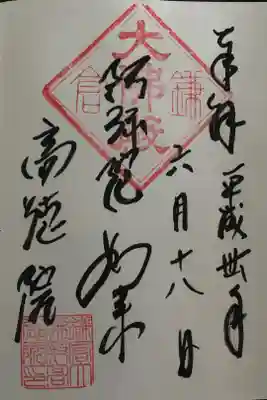 奉拝 平成卅年
六月十八日
鎌倉
大佛殿
阿弥陀如来
高徳院